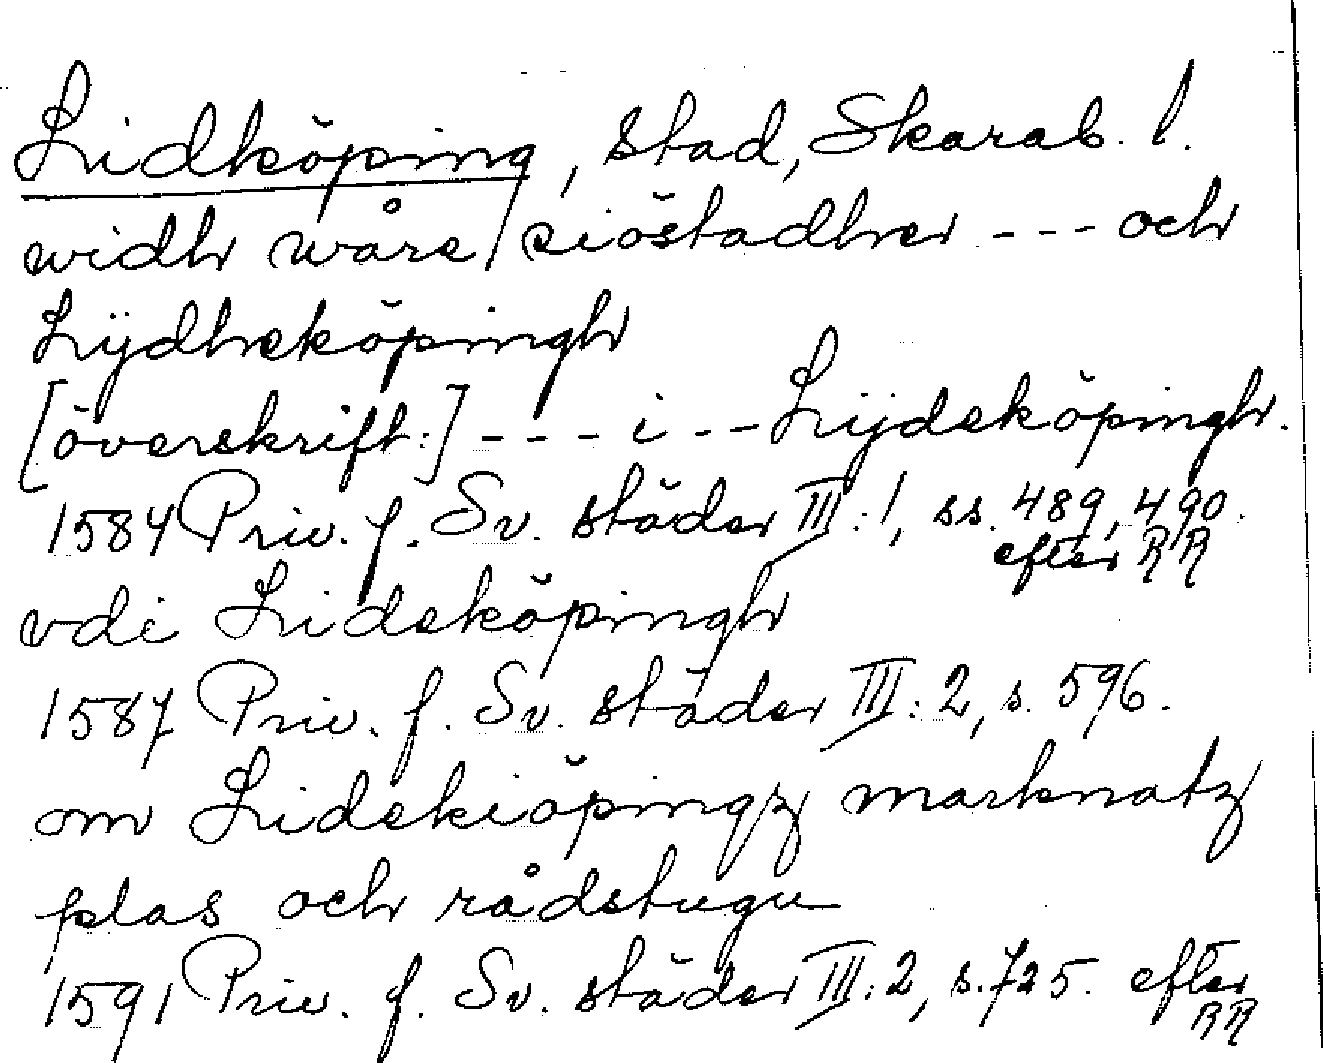 Lidköping, stad, Skarab. l.
widh wåre siöstadher --- och
Lÿdheköpingh
[överskrift:] --- i -- Lÿdeköpingh.
1584 Priv. f. Sv. städer III:1, ss. 489, 490.
efter RR
vdi Lideköpingh
1587 Priv. f. Sv. städer III:2, s. 596.
om Lidekiöpingz marknatz
plas och rådstugu
1591 Priv. f. Sv. städer III:2, s. 725. efter
RR